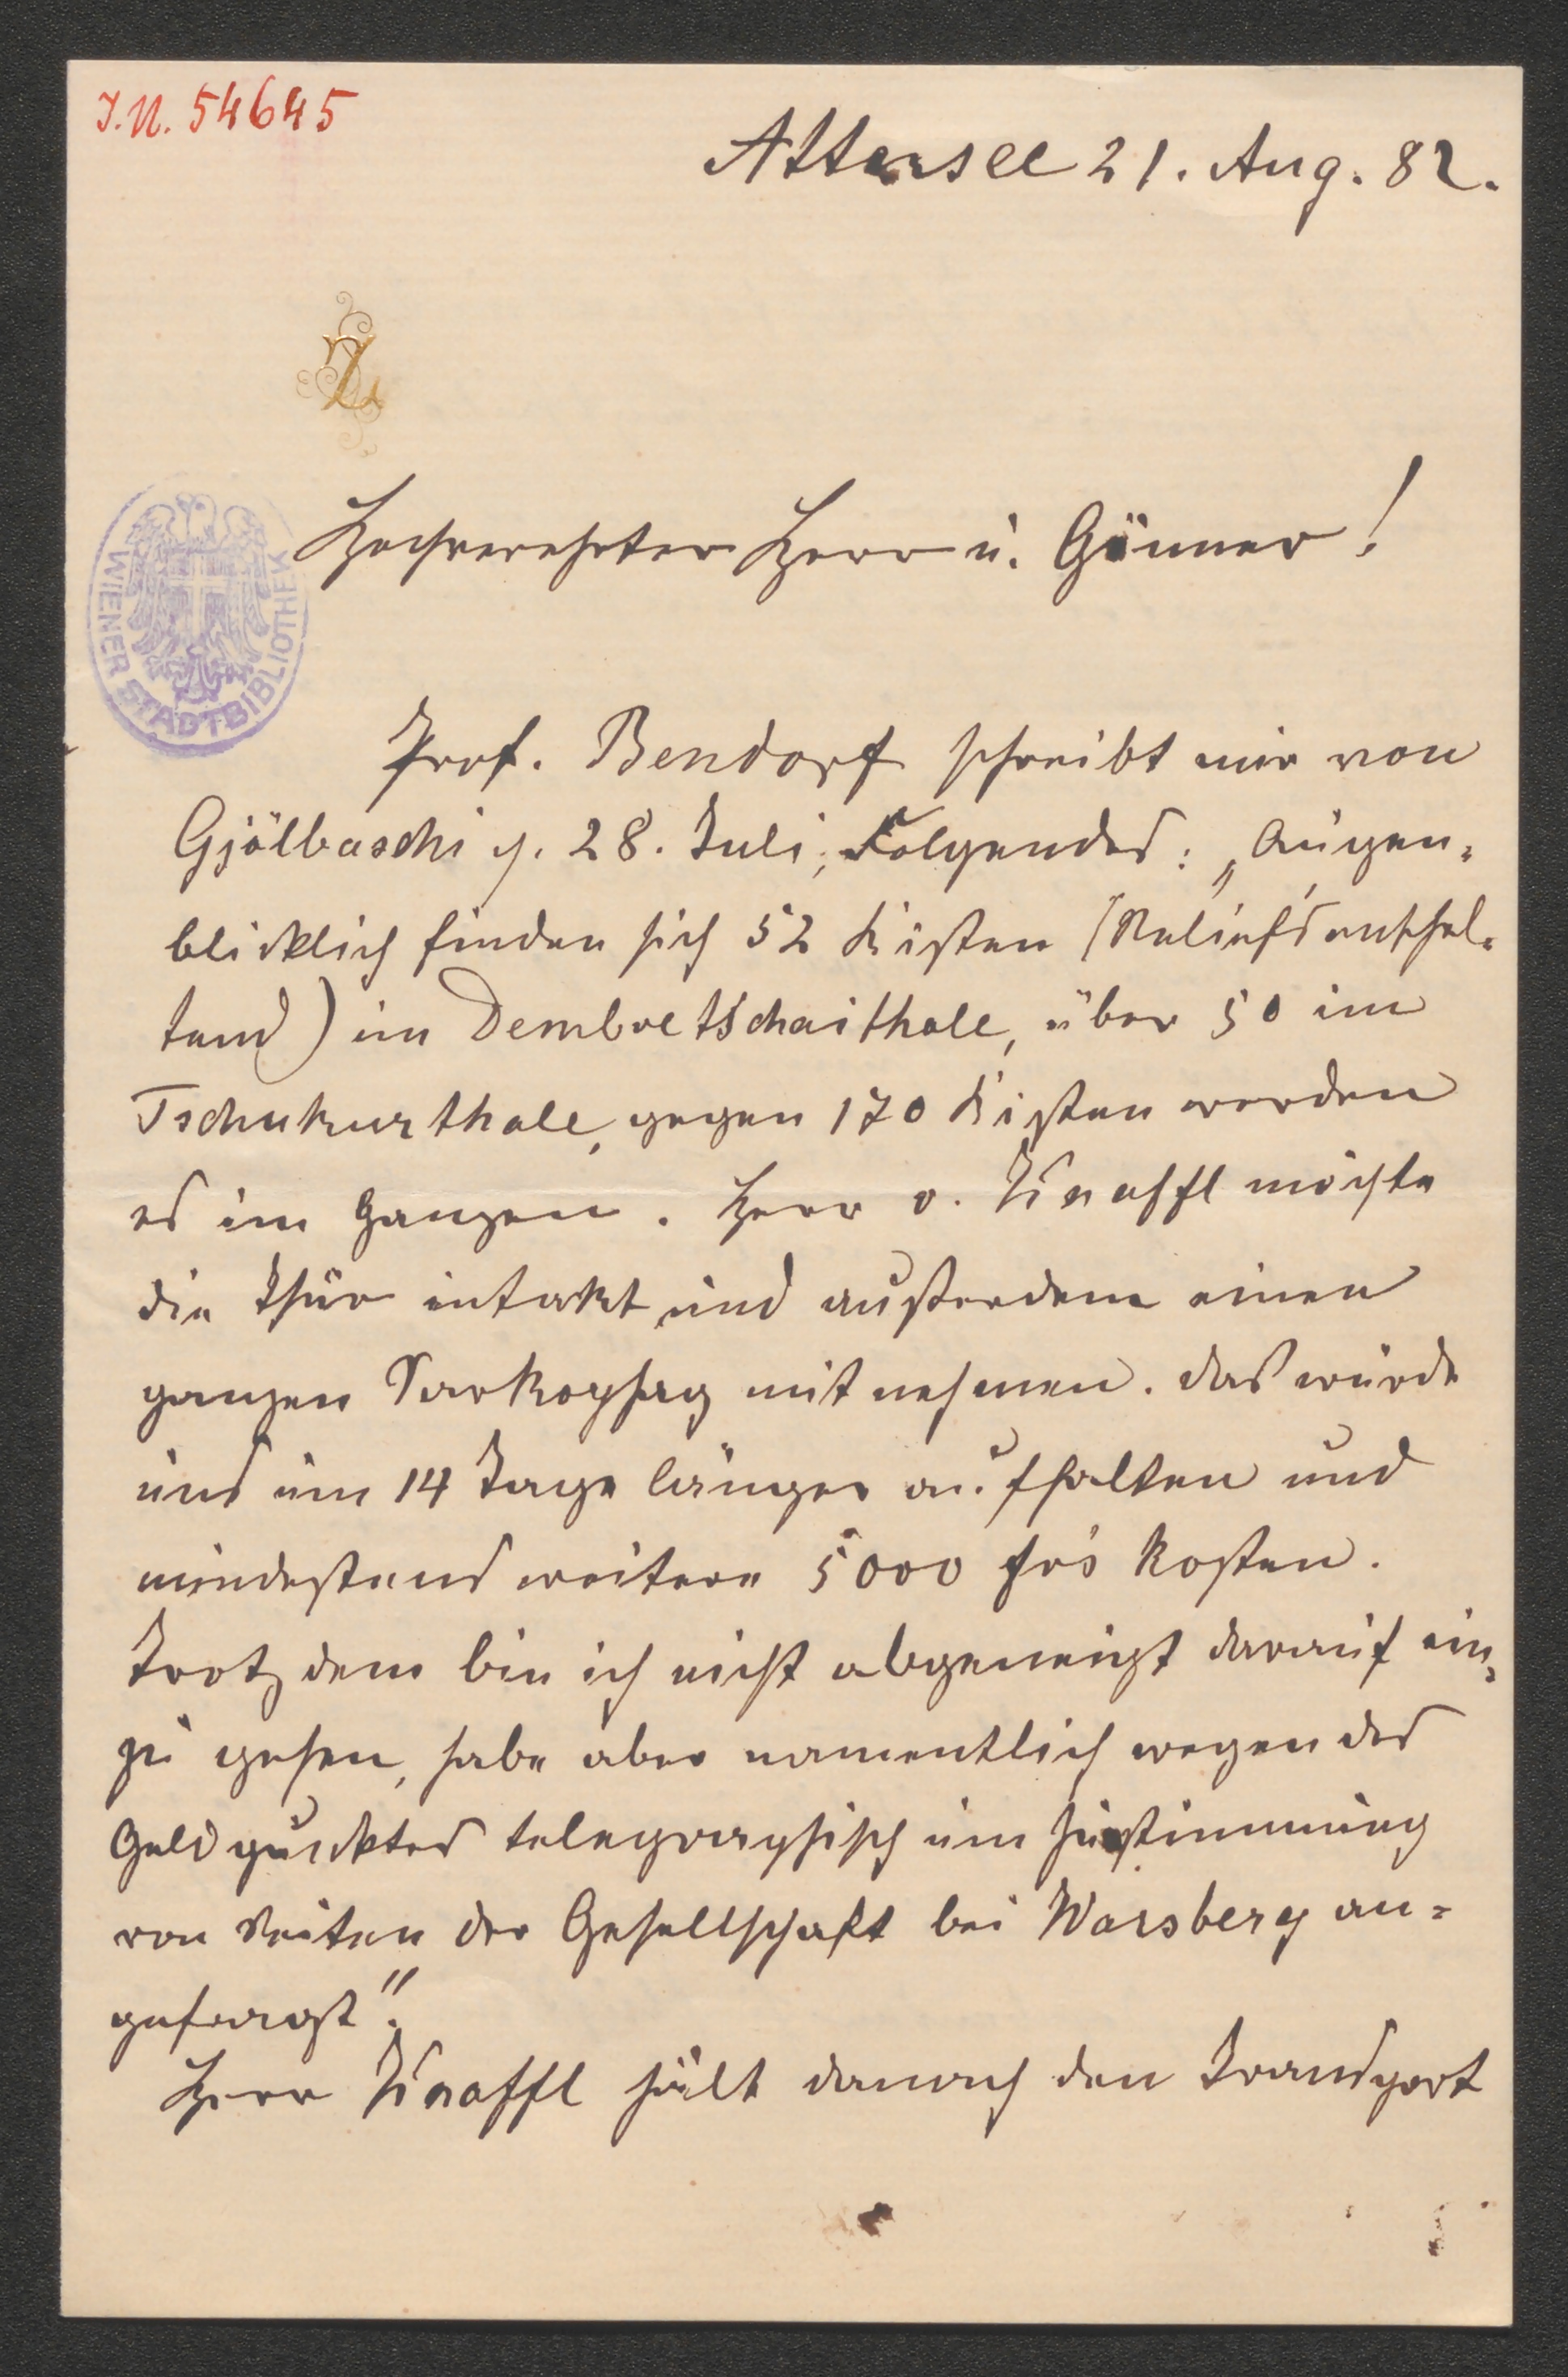 I.N. 54645
Attersee 21. Aug. 82.
WIENER STADTBIBLIOTHEK
Hochverehrter Herr u. Gönner!
Prof. Bendorf schreibt mir von
Gjölbaschi p. 28. Juli, Folgendes: „Augen-
blicklich finden sich 52 Kisten (Reliefs enthal-
tend) im Dembretschaithale, über 50 im
Tschukurthale, gegen 170 Kisten werden
es im Ganzen. Herr v. Knaffl möchte
die Thür intakt und außerdem einen
ganzen Sarkophag mit nehmen. Das würde
uns um 14 Tage länger aufhalten und
mindestens weitere 5000 frs kosten.
Trotz dem bin ich nicht abgeneigt darauf ein-
zu gehen, habe aber namentlich wegen des
Geldpunktes telegraphisch um Zustimmung
von Seiten der Gesellschaft bei Warsberg an=
gefragt".
Herr Knaffl hält danach den Transport